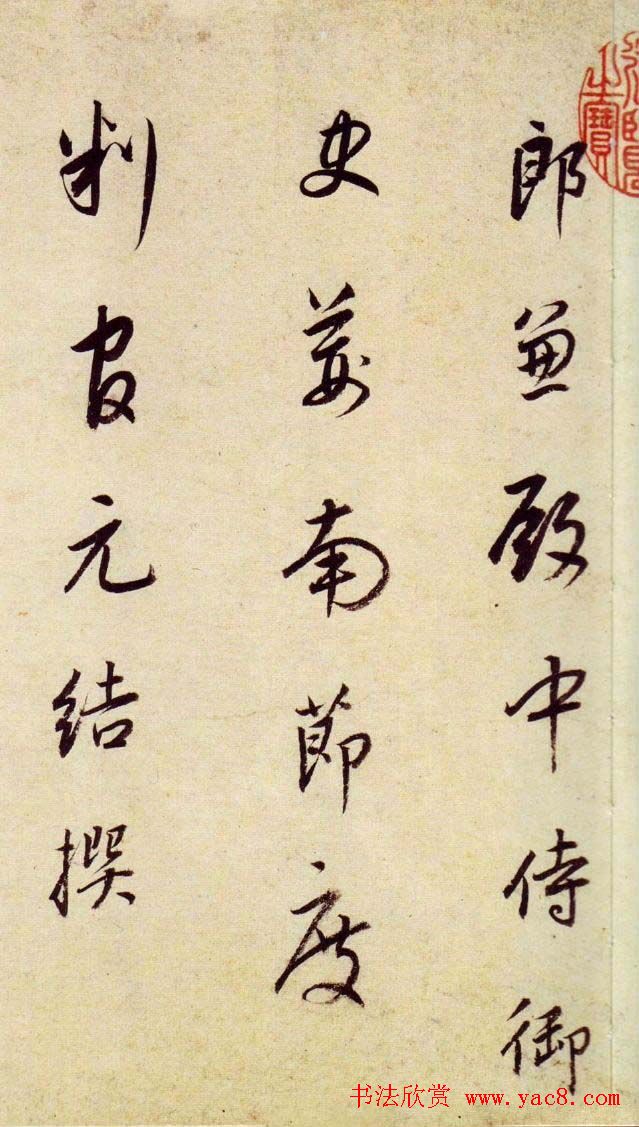 郎兼殿中侍御
史荊南節度
判官元結撰
之寶
书法欣赏 www.yac8.com